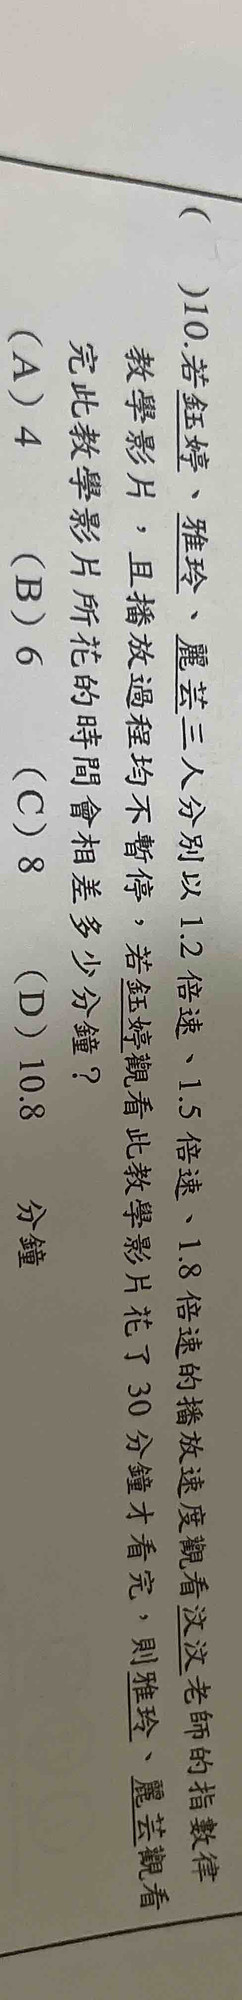 (　)10.若鈺婷、雅玲、麗芸三人分別以 1.2 倍速、1.5 倍速、1.8 倍速的播放速度觀看汶汶老師的指數律
教學影片，且播放過程均不暫停，若鈺婷觀看此教學影片花了 30 分鐘才看完，則雅玲、麗芸觀看
完此教學影片所花的時間會相差多少分鐘？
(A) 4　(B) 6　(C) 8　(D) 10.8　分鐘